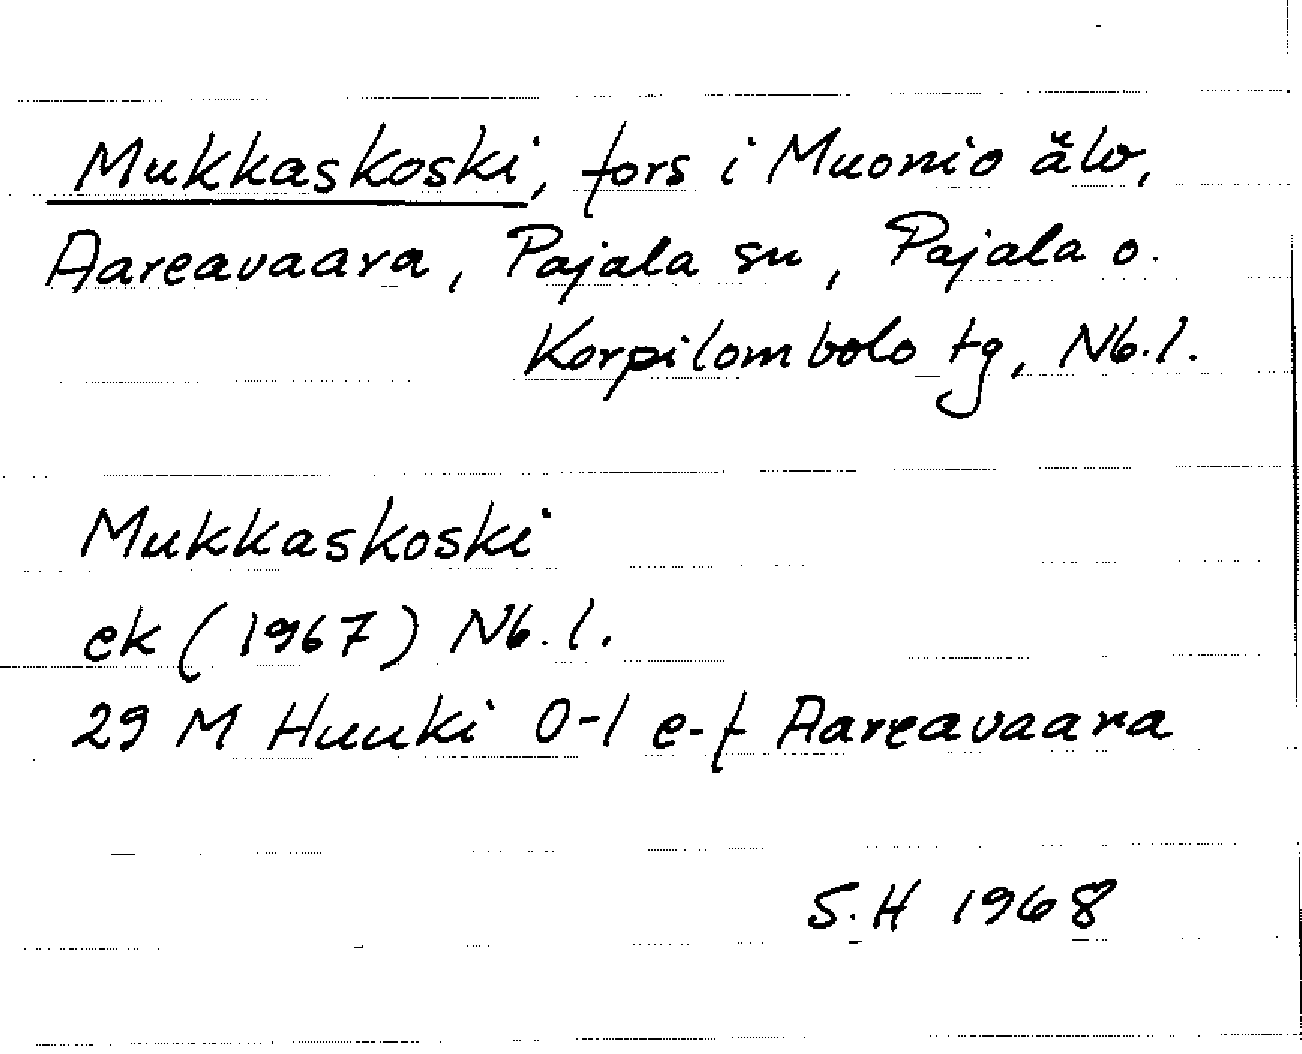 Mukkaskoski, fors i Muonio älv,
Aareavaara, Pajala sn, Pajala o.
Korpilombolo tg, Nb.l.
Mukkaskoski
ek (1967) Nb.l.
29 M Huuki 0-1 e-f Aareavaara
S.H 1968